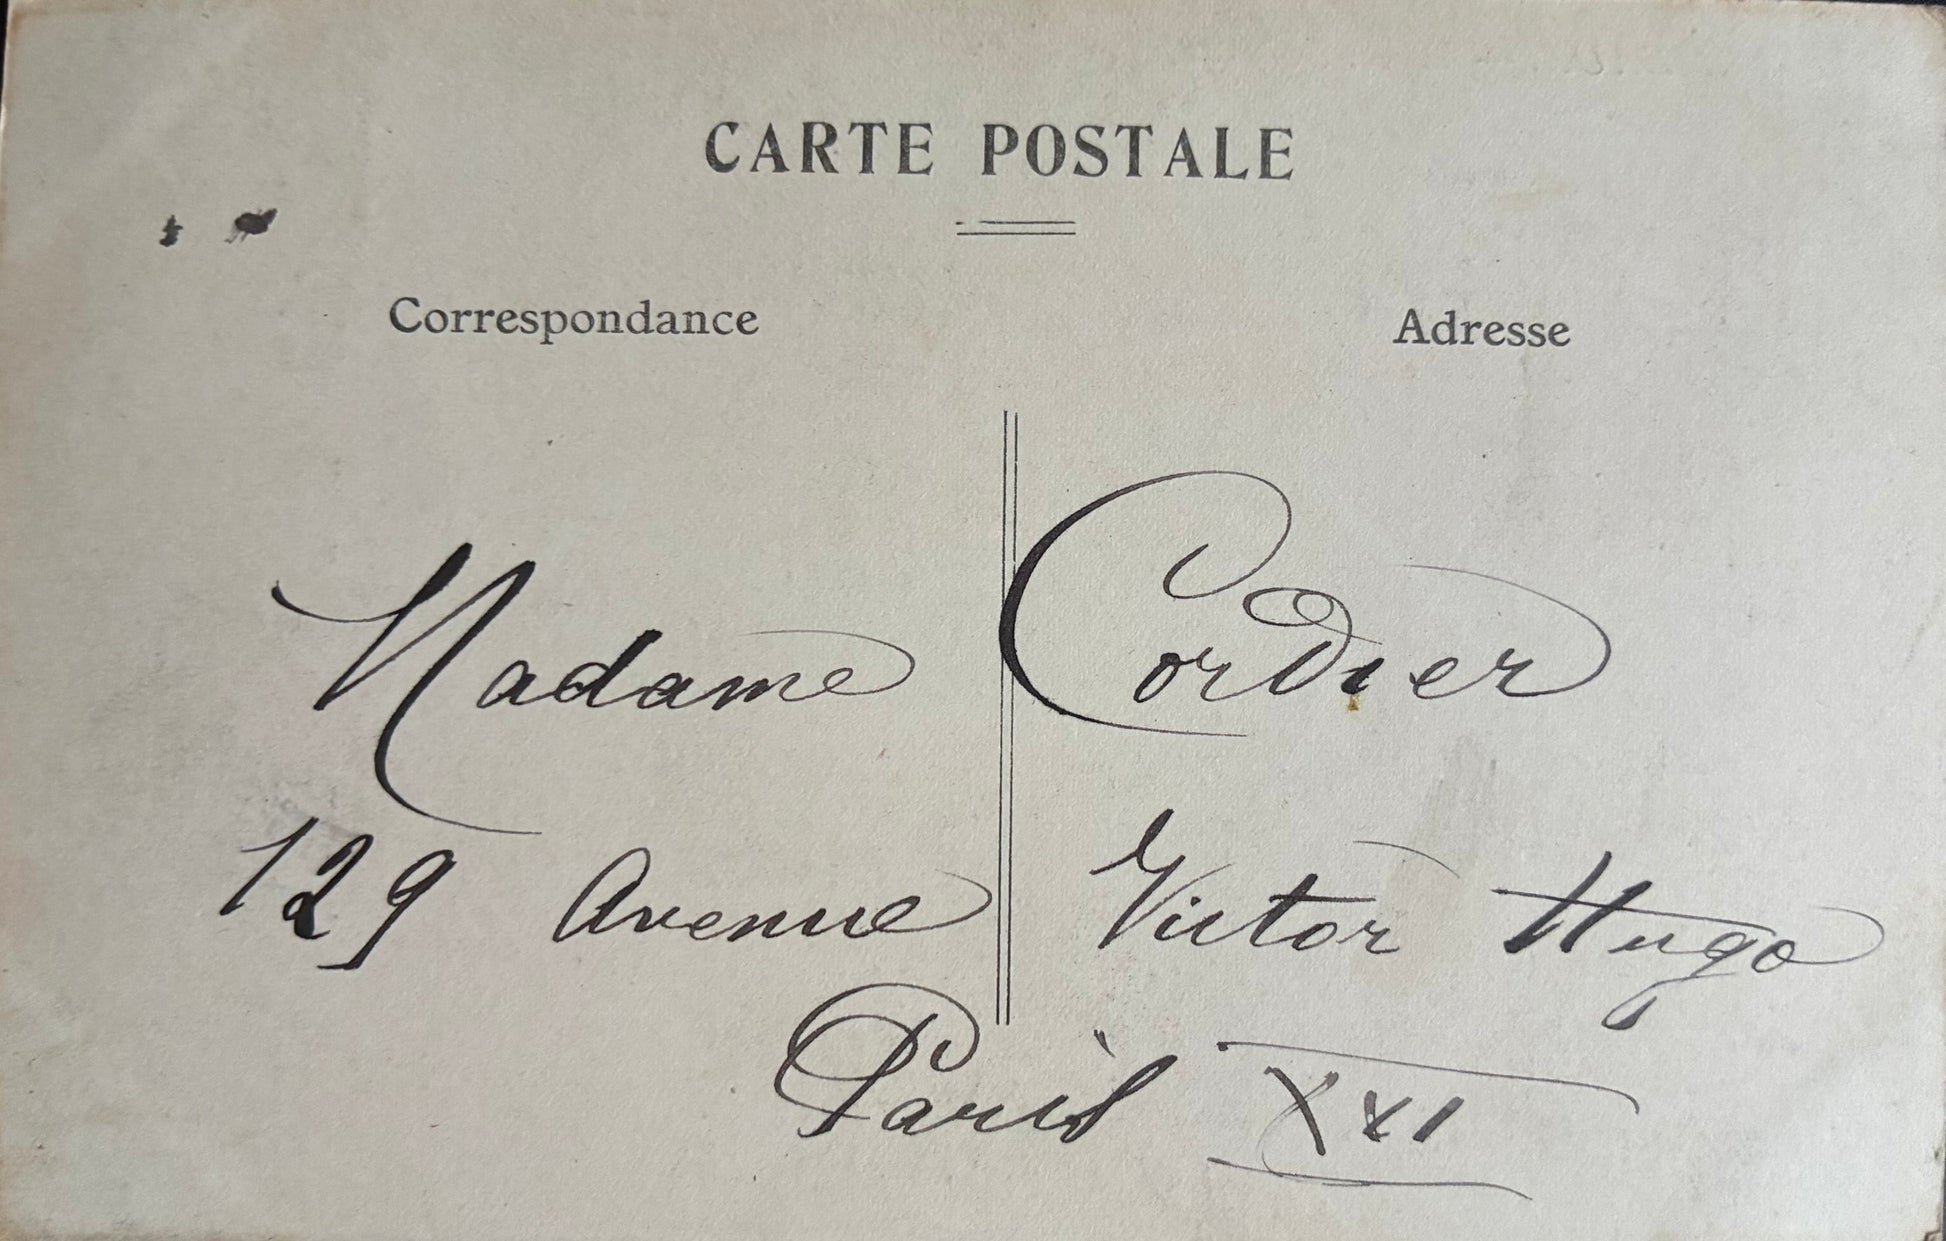 CARTE POSTALE
Correspondance Adresse
Madame Cordier
129 Avenue Victor Hugo
Paris XXI